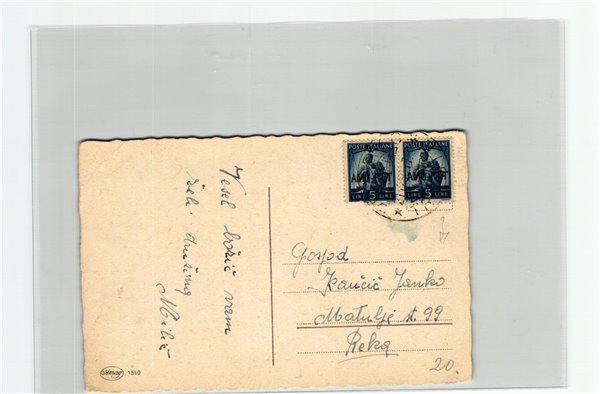 Vesel božič vam
želi družina
Milič
POSTE ITALIANE
POSTE ITALIANE
AMG-FTT
AMG-FTT
LIRE 5 LIRE
LIRE 5 LIRE
Gospod
Janko
Matulje št. 99
Reka
20.
1510